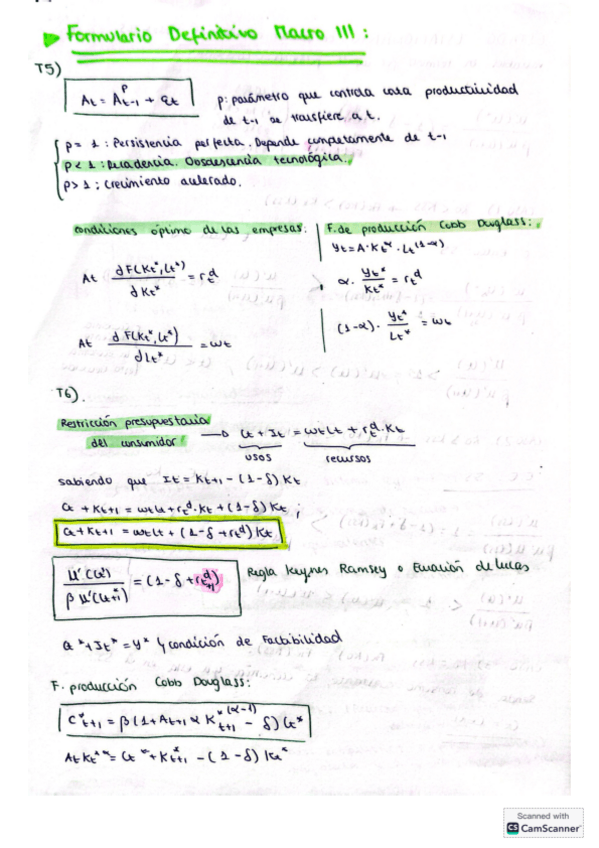 Formulario Definitivo Macro III :
T5)
At = A^p_t-1 + at
p: parámetro que controla cada productividad
de t-1 se transfiere a t.
p = 1 : Persistencia perfecta. Depende completamente de t-1
p < 1 : Decadencia. Obsolescencia tecnológica.
p > 1 : Crecimiento acelerado.
condiciones óptimo de las empresas:
F. de producción Cobb Douglass:
Yt = A · Kt^α · Lt^(1-α)
At ∂F(Kt*, Lt*) / ∂Kt* = rt^d
α · Yt* / Kt* = rt^d
At ∂F(Kt*, Lt*) / ∂Lt* = wt
(1-α) · Yt* / Lt* = wt
T6).
Restricción presupuestaria
del consumidor → Ct + It = wtLt + rt^d · Kt
usos recursos
sabiendo que It = Kt+1 - (1-δ)Kt
Ct + Kt+1 = wtLt + rt^d · Kt + (1-δ)Kt ;
Ct + Kt+1 = wtLt + (1-δ + rt^d) Kt
u'(Ct*) / β u'(Ct+1*) = (1-δ + r^d_t+1)
Regla Keynes Ramsey o Ecuación de Lucas
Ct* + It* = Y* condición de Factibilidad
F. producción Cobb Douglass:
C*t+1 = β (1 + At+1 α K*t+1^(α-1) - δ) Ct*
At Kt*^α = Ct* + K*t+1 - (1-δ) Kt*
Scanned with
CS CamScanner